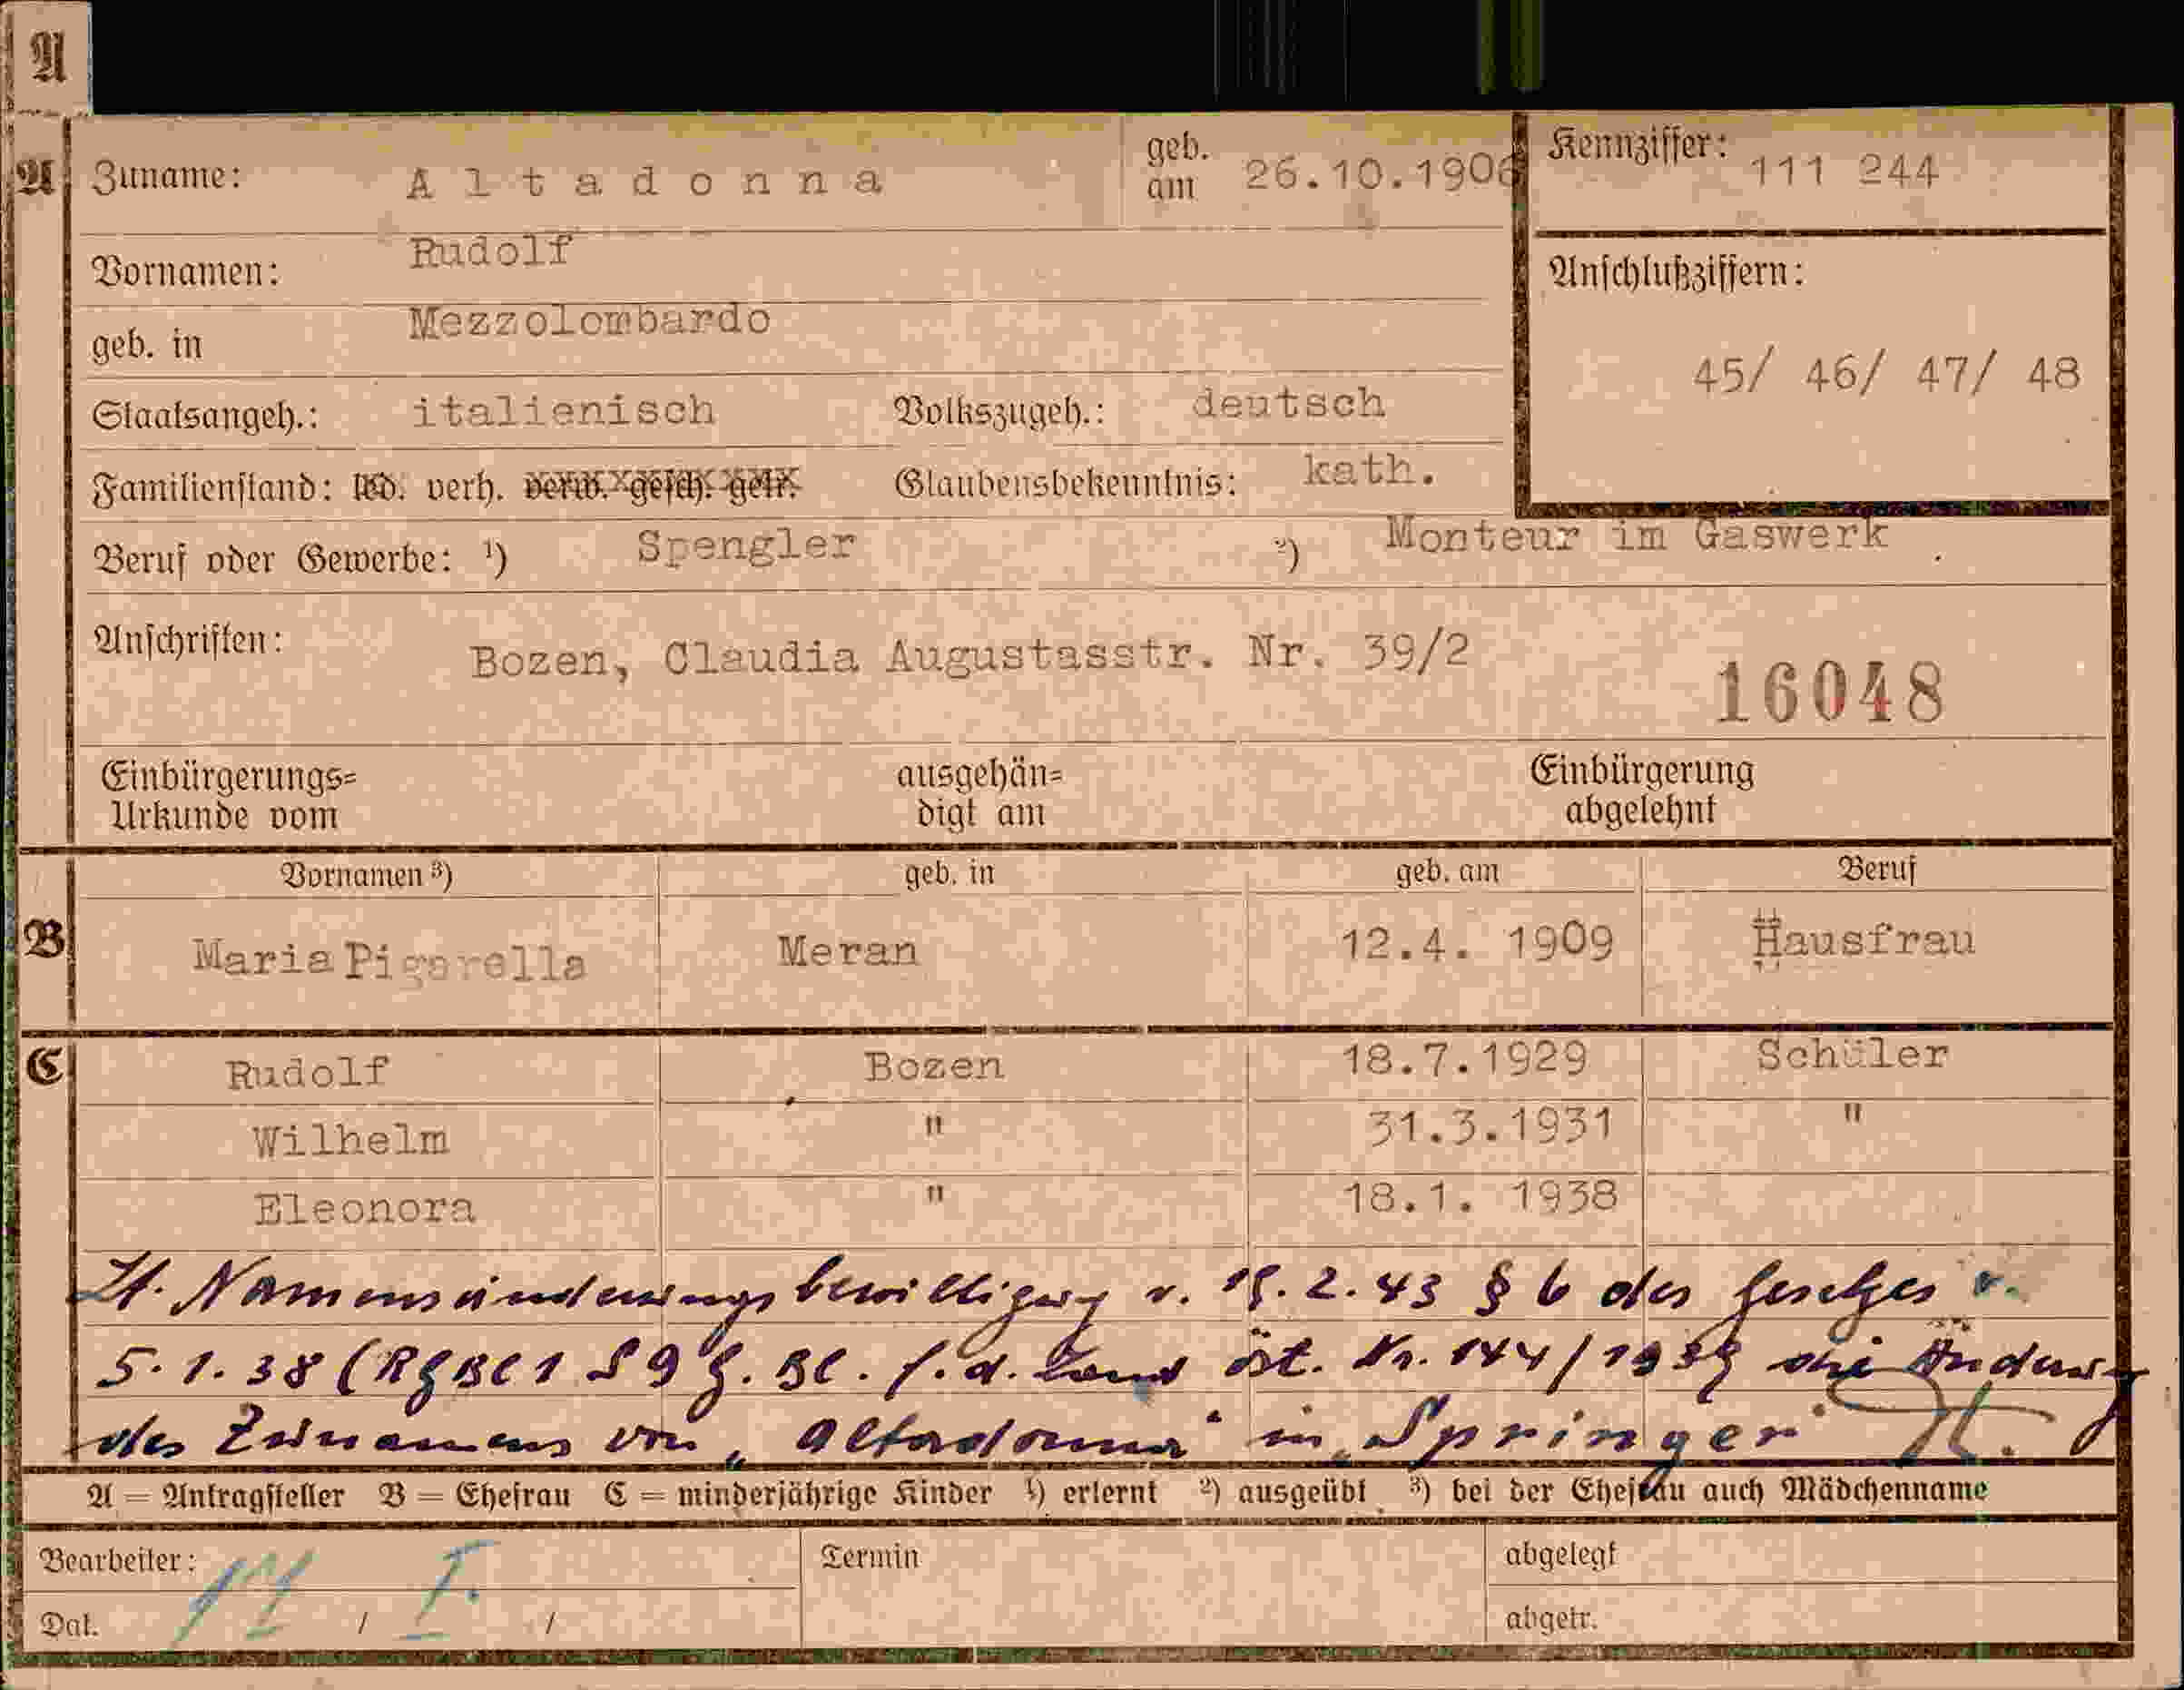 A
A Zuname: Altadonna geb. am 26.10.1906 Kennziffer: 111 244
Vornamen: Rudolf
Anschlußziffern:
geb. in Mezzolombardo
45/ 46/ 47/ 48
Staatsangeh.: italienisch Volkszugeh.: deutsch
Familienstand: led. verh. verw. gesch. getr. Glaubensbekenntnis: kath.
Beruf oder Gewerbe: ¹) Spengler ²) Monteur im Gaswerk
Anschriften: Bozen, Claudia Augustasstr. Nr. 39/2
16048
Einbürgerungs= ausgehän= Einbürgerung
Urkunde vom digt am abgelehnt
Vornamen ³) geb. in geb. am Beruf
B Maria Pigarella Meran 12.4. 1909 Hausfrau
C Rudolf Bozen 18.7.1929 Schüler
Wilhelm " 31.3.1931 "
Eleonora " 18.1. 1938
Lt. Namensänderungsbewilligung v. 2.43 § 6 des Gesetzes v.
5.1.38 (RGBl 1 S 9 G. Bl. f. d. Land öst. Nr. 144/1939 die Änderung
des Zunamens von "Altadonna" in "Springer"
A = Antragsteller B = Ehefrau C = minderjährige Kinder ¹) erlernt ²) ausgeübt ³) bei der Ehefrau auch Mädchenname
Bearbeiter: I. Termin abgelegt
Dat. / / abgetr.